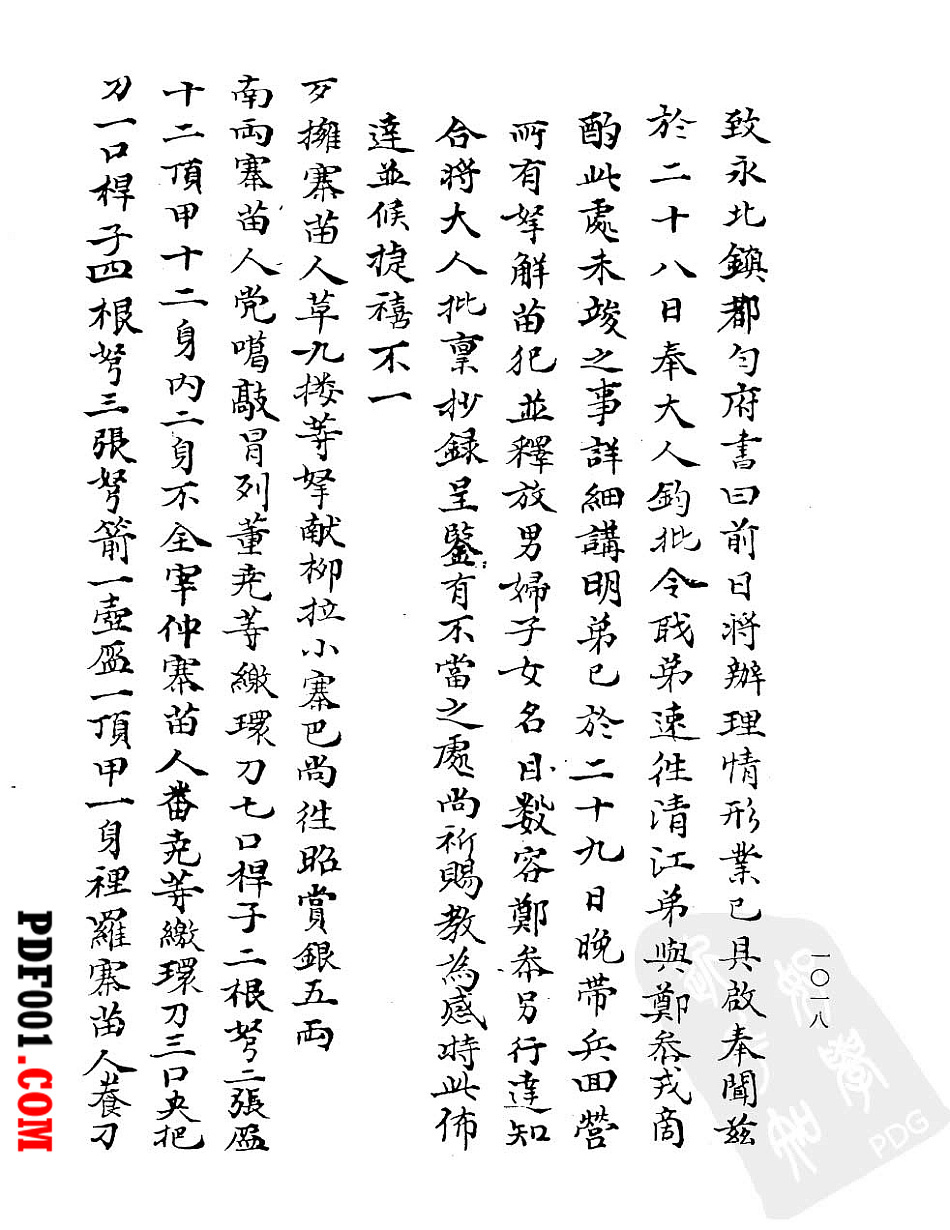 致永北鎮都勻府書曰前日將辦理情形業已具啟奉聞茲
於二十八日奉大人鈞批令戝弟速徃清江弟與鄭叅戎商
酌此處未竣之事詳細講明弟已於二十九日晚帶兵囬營
所有拏解苗犯並釋放男婦子女名目數容鄭叅另行達知
合將大人批稟抄録呈鑒有不當之處尚祈賜教為感特此佈
達並候捷禧不一
丆擁寨苗人草九搂䓁拏献柳拉小寨巴尚徃昭賞銀五両
南両寨苗人党噶敲冐列董尭䓁繳環刀七口桿子二根弩二張盔
十二頂甲十二身内二身不全宰仲寨苗人番尭䓁繳環刀三口央把
刀一口桿子四根弩三張弩箭一壺盔一頂甲一身裡羅寨苗人養刀
一〇一八
PDF001.COM
PDG